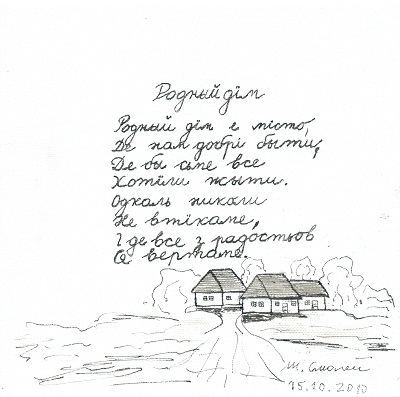 Родный дім
Родный дім є місто,
Де нам добрі быти,
Де бы сьме все
Хотїли жыти.
Одкаль никали
Не втїкаме,
І де все з радостьов
Ся вертаме.
М. Смолей
15.10.2010